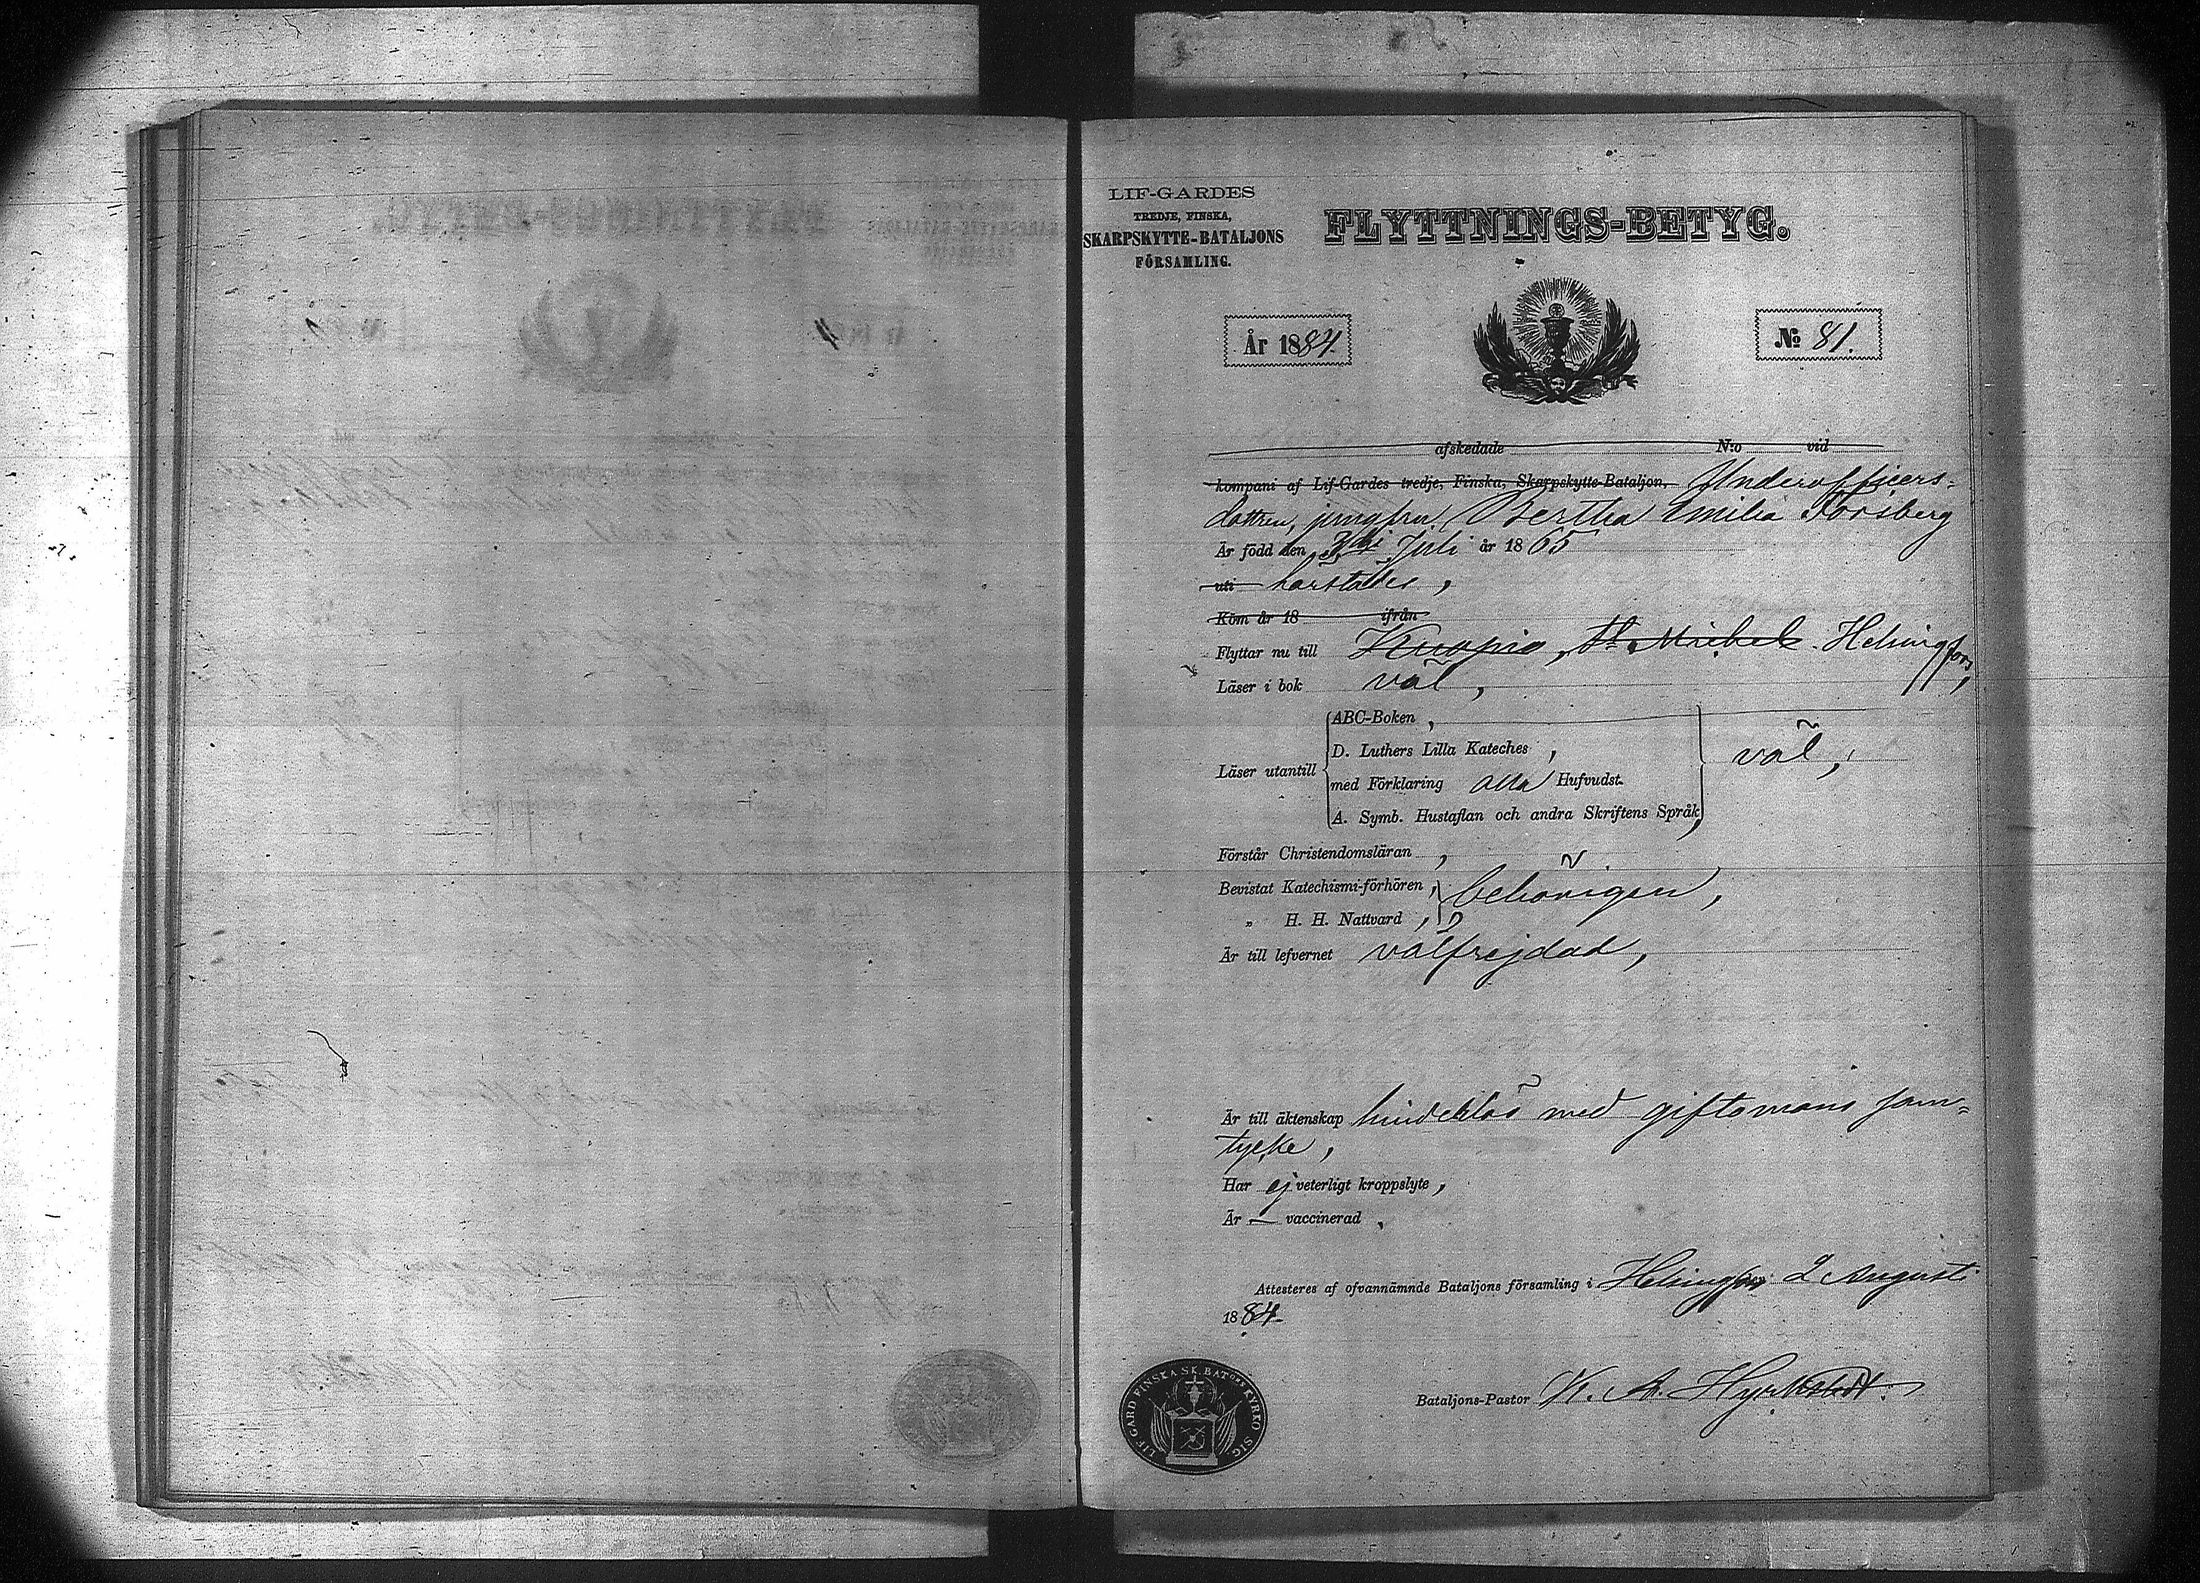 LIF-GARDES
TREDJE, FINSKA,
SKARPSKYTTE-BATALJONS
FÖRSAMLING.
FLYTTNINGS-BETYG.
År 1884.
№ 81.
afskedade N:o vid
kompani af Lif-Gardes tredje, Finska, Skarpskytte-Bataljon, Underofficers-
dottren, jungfru Bertha Emilia Forsberg
Är född den Juli år 1865
uti härstädes,
Kom år 18 ifrån
Flyttar nu till Kuopio, St Michel. Helsingfors,
Läser i bok väl,
Läser utantill
ABC-Boken,
D. Luthers Lilla Kateches,
med Förklaring alla Hufvudst.
A. Symb. Hustaflan och andra Skriftens Språk,
väl,
Förstår Christendomsläran,
Bevistat Katechismi-förhören,
„ H. H. Nattvard,
behörigen,
Är till lefvernet välfrejdad,
Är till äktenskap hinderlös med giftomans sam-
tycke,
Har ej veterligt kroppslyte,
Är — vaccinerad.
Attesteres af ofvannämnde Bataljons församling i Helsingfors 2 Augusti
1884.
Bataljons-Pastor K. A. Hyrkstedt.
LIF-GARD FINSKA SK BATONS KYRKO SIG.